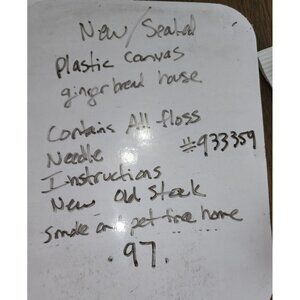 New/Sealed
Plastic Canvas
gingerbread house
Contains All floss
Needle #933359
Instructions
New old stock
Smoke and pet free home
.97.